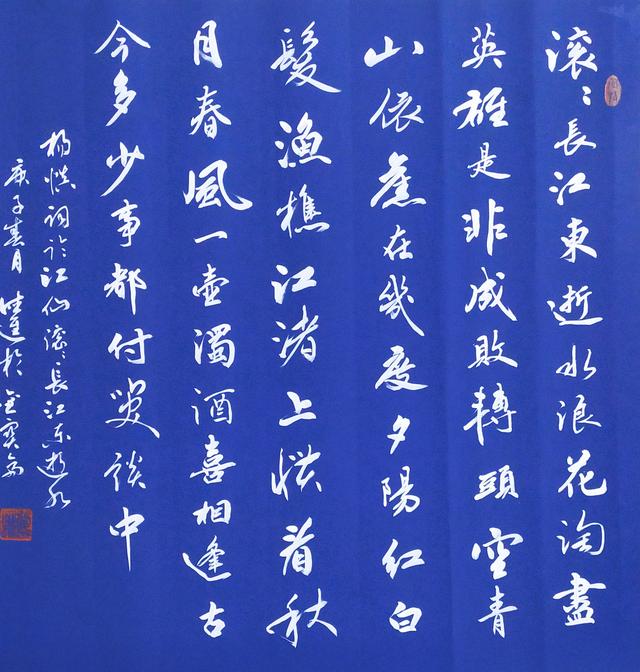 滚〻長江東逝水浪花淘盡
英雄是非成敗轉頭空青
山依舊在幾度夕陽红白
髮渔樵江渚上惯看秋
月春風一壺濁酒喜相逢古
今多少事都付笑談中
杨慎词临江仙滚〻長江东逝水
庚子春月於